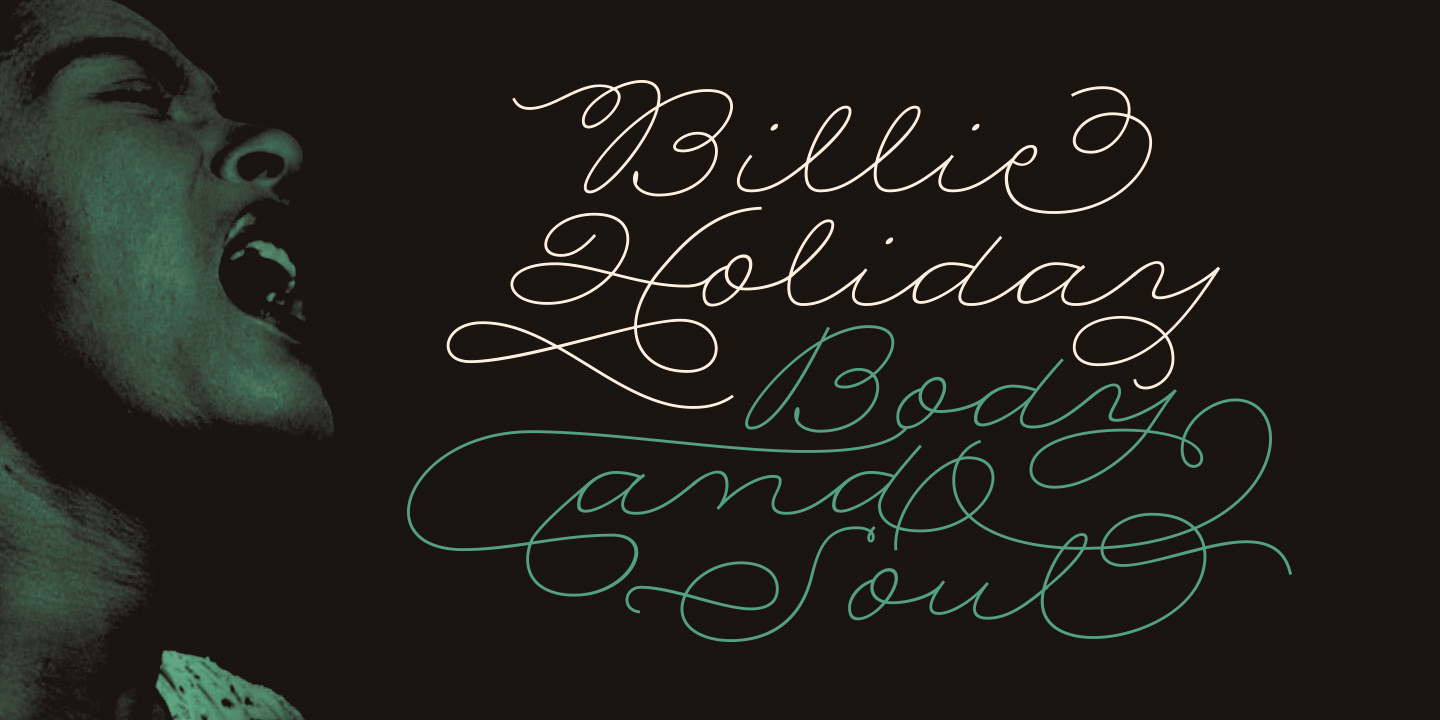 Billie
Holiday
Body
and
Soul